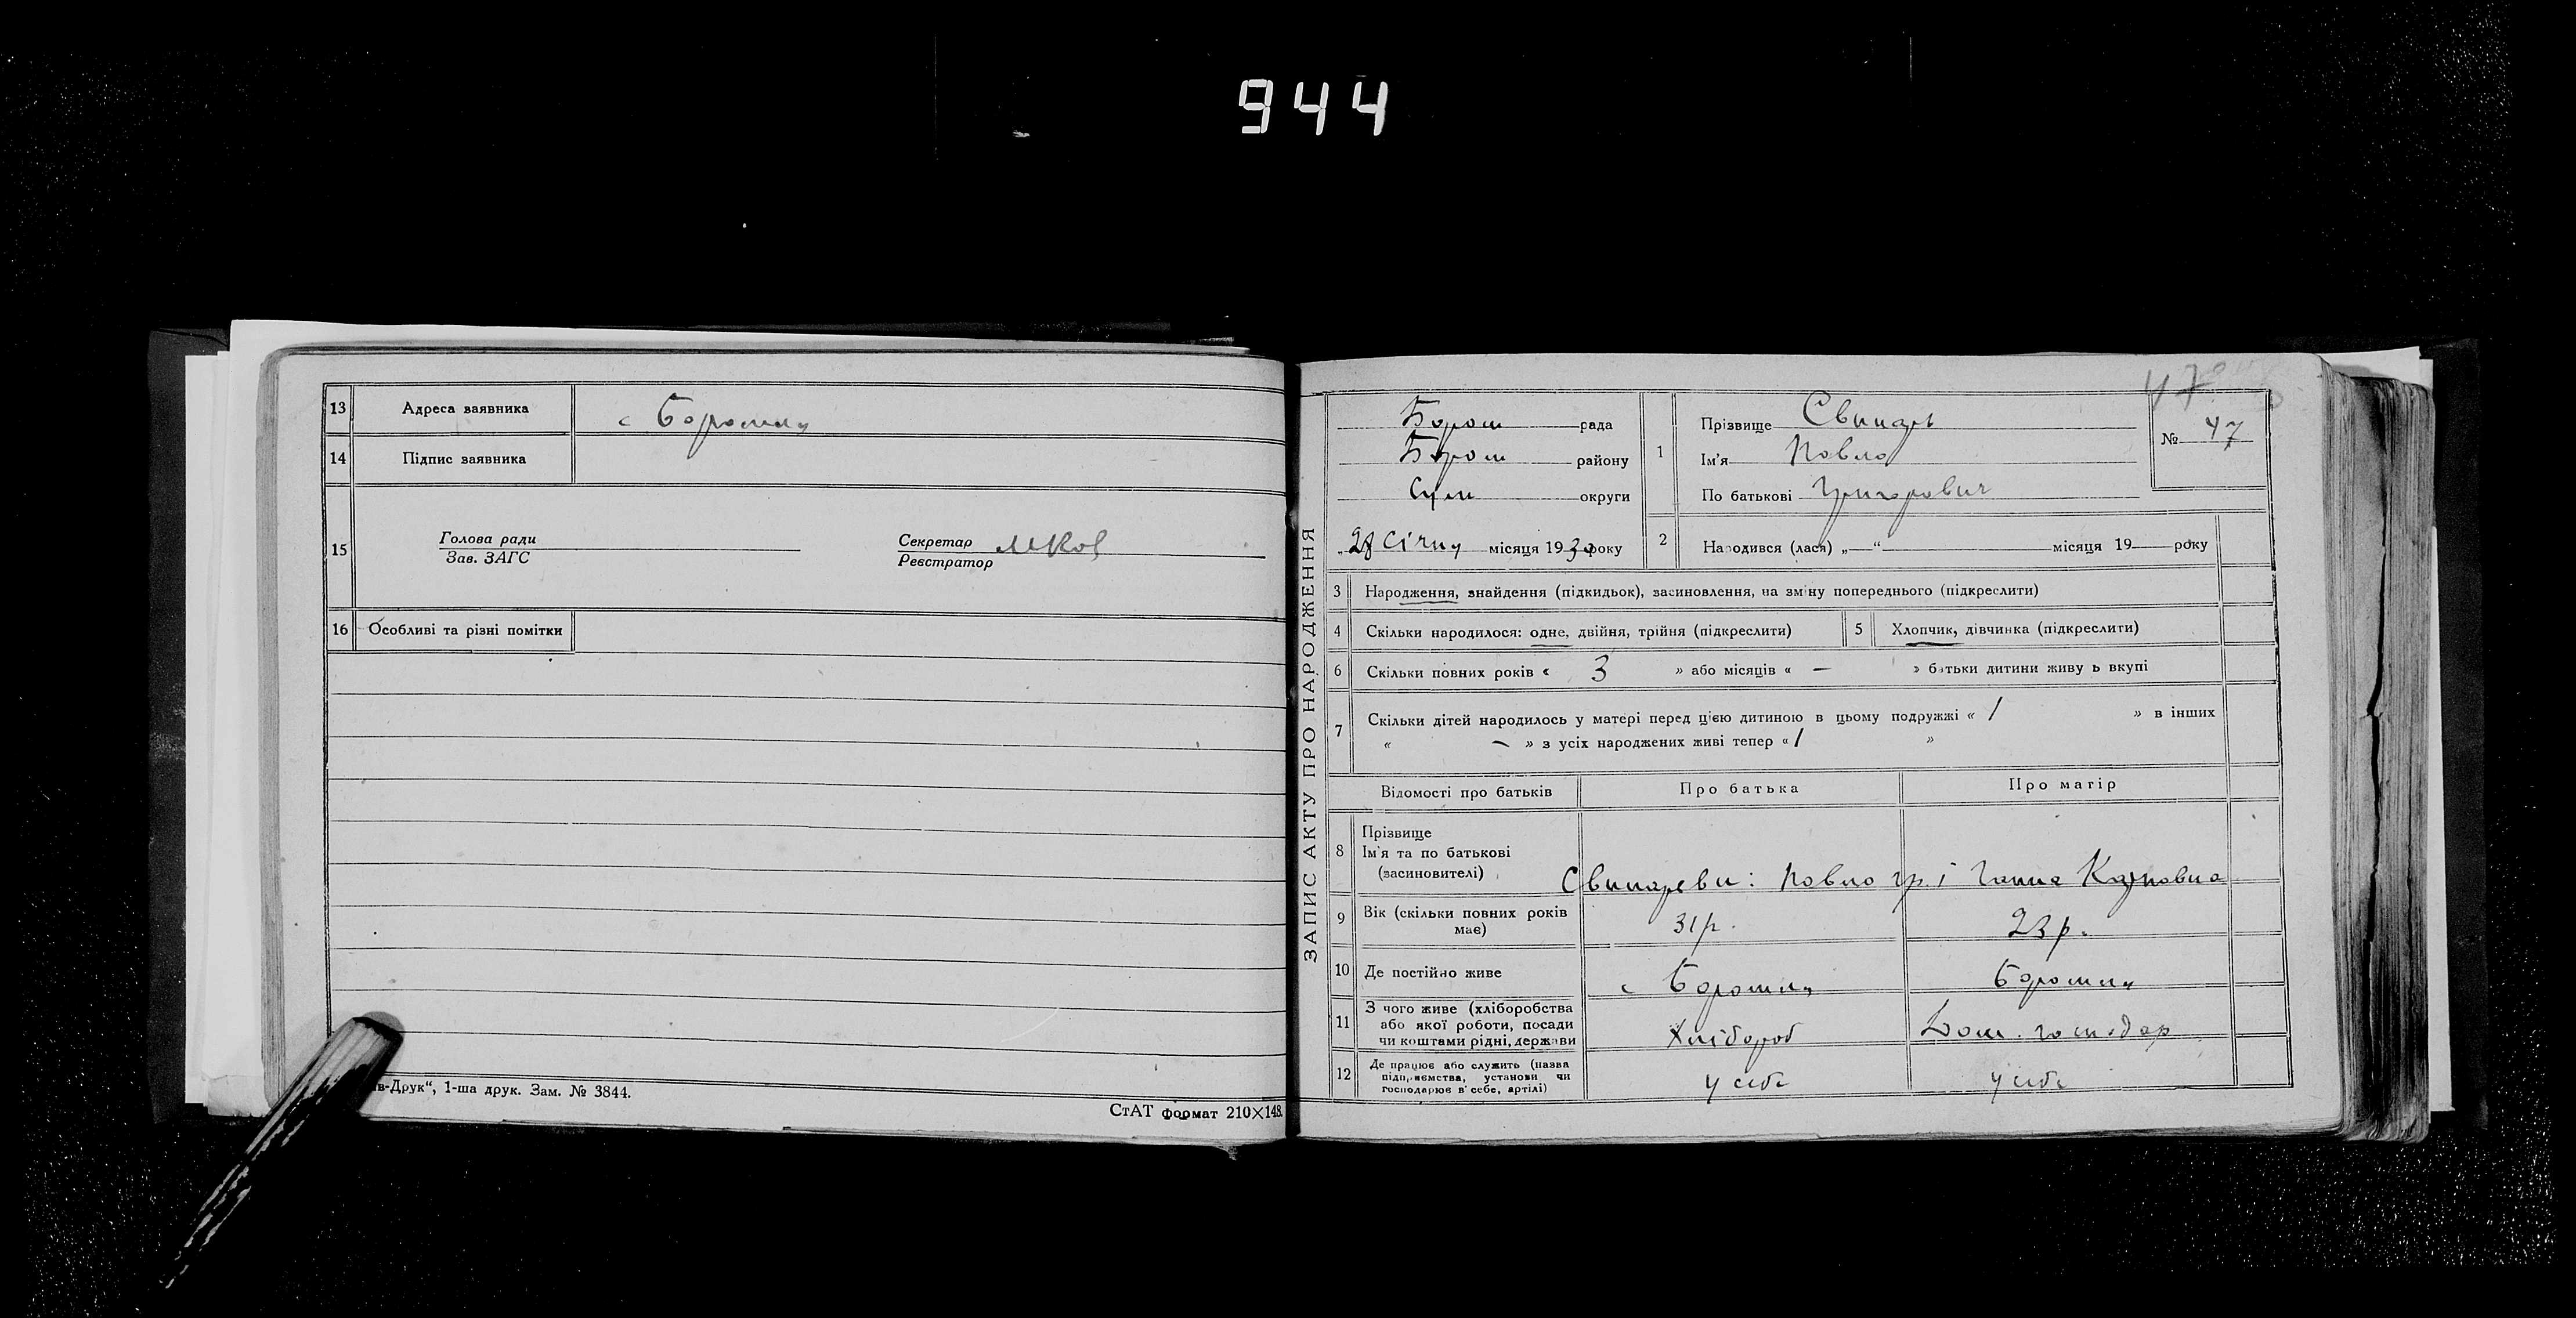 944
13 Адреса заявника с Боромля
14 Підпис заявника
15 Голова ради
Зав. ЗАГС
Секретар
Реєстратор
16 Особливі та різні помітки
в-Друк“, 1-ша друк. Зам. № 3844.
СтАТ формат 210×148.
47
ЗАПИС АКТУ ПРО НАРОДЖЕННЯ
Бором рада
Бором району
Сум округи
„28 Січня місяця 1930 року
1 Прізвище Свинарь
Ім'я Павло
По батькові Григорович
№ 47
2 Народився (лася) „—“ місяця 19 року
3 Народження, знайдення (підкидьок), засиновлення, на зміну попереднього (підкреслити)
4 Скільки народилося: одне, двійня, трійня (підкреслити)
5 Хлопчик, дівчинка (підкреслити)
6 Скільки повних років « 3 » або місяців « — » батьки дитини живуть вкупі
7 Скільки дітей народилось у матері перед цією дитиною в цьому подружжі « 1 » в інших
« — » з усіх народжених живі тепер « 1 »
Відомості про батьків Про батька Про матір
8 Прізвище
Ім'я та по батькові
(засиновителі) Свинареви: Павло гр. і Ганна Карповна
9 Вік (скільки повних років
має) 31 р. 23 р.
10 Де постійно живе с Боромля Боромля
11 З чого живе (хліборобства
або якої роботи, посади
чи коштами рідні, держави Хлібороб Дом. господар
12 Де працює або служить (назва
підприємства, установи чи
господарює в себе, артілі) у себе у себе